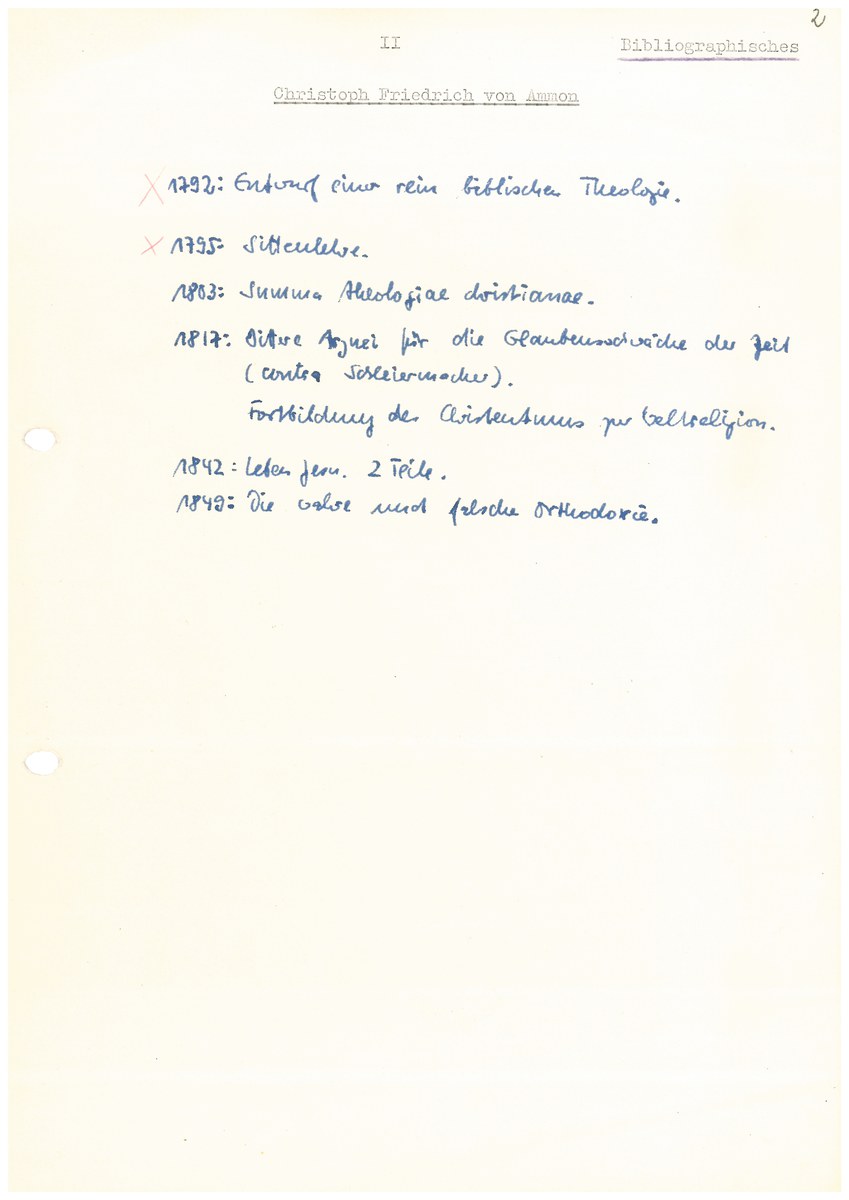 2
II
Bibliographisches
Christoph Friedrich von Ammon
1792: Entwurf einer rein biblischen Theologie.
1795: Sittenlehre.
1803: Summa theologiae christianae.
1817: Bittere Arznei für die Glaubensschwäche der Zeit
(contra Schleiermacher).
Fortbildung des Christentums zur Weltreligion.
1842: Leben Jesu. 2 Teile.
1849: Die wahre und falsche Orthodoxie.